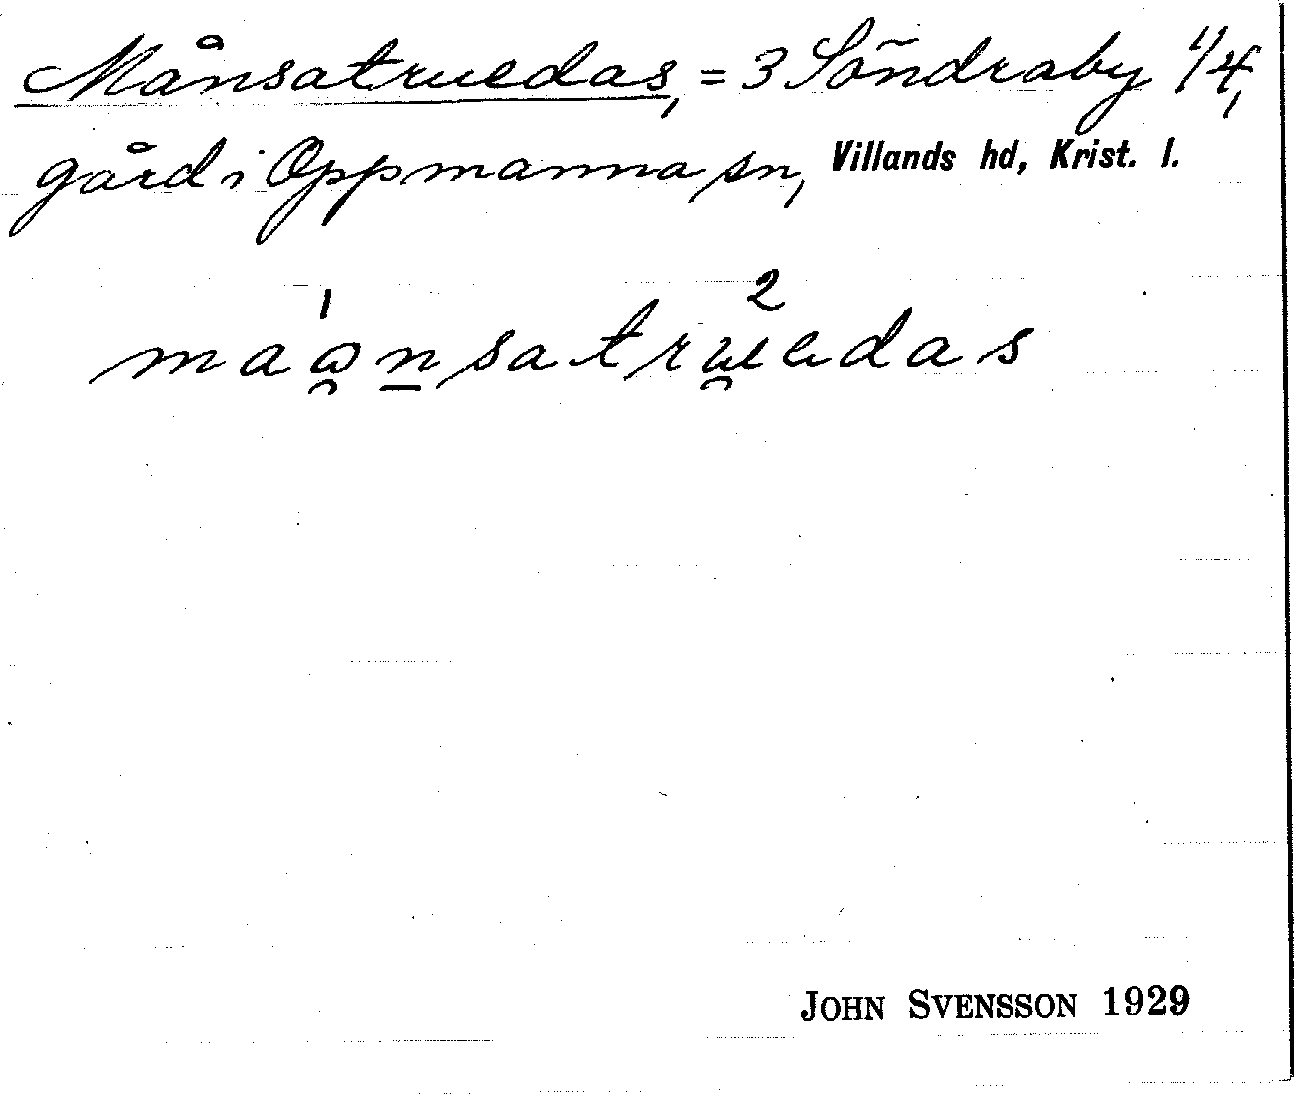 Månsatruedas, = 3 Söndraby 1/4,
gård i Oppmanna sn, Villands hd, Krist. l.
1 2
maånsatruedas
JOHN SVENSSON 1929